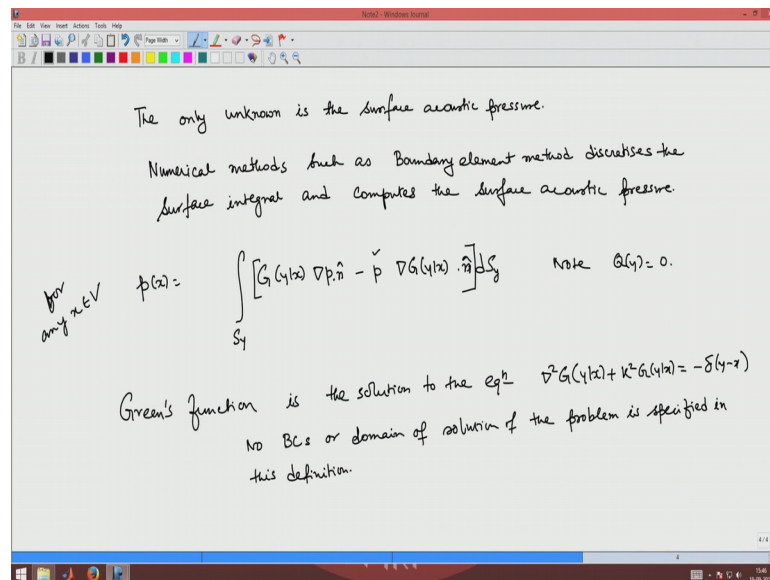 Note2 - Windows Journal
File Edit View Insert Actions Tools Help
Page Width
B I
The only unknown is the surface acoustic pressure.
Numerical methods such as Boundary element method discretises the
surface integral and computes the surface acoustic pressure.
for any x∈V p(x) = ∫_{Sy} [G(y|x) ∇p.n̂ − p̌ ∇G(y|x).n̂] dSy Note Q(y)=0.
Green's function is the solution to the eqn ∇²G(y|x)+k²G(y|x)= −δ(y-x)
No BCs or domain of solution of the problem is specified in
this definition.
4/4
4
15:46